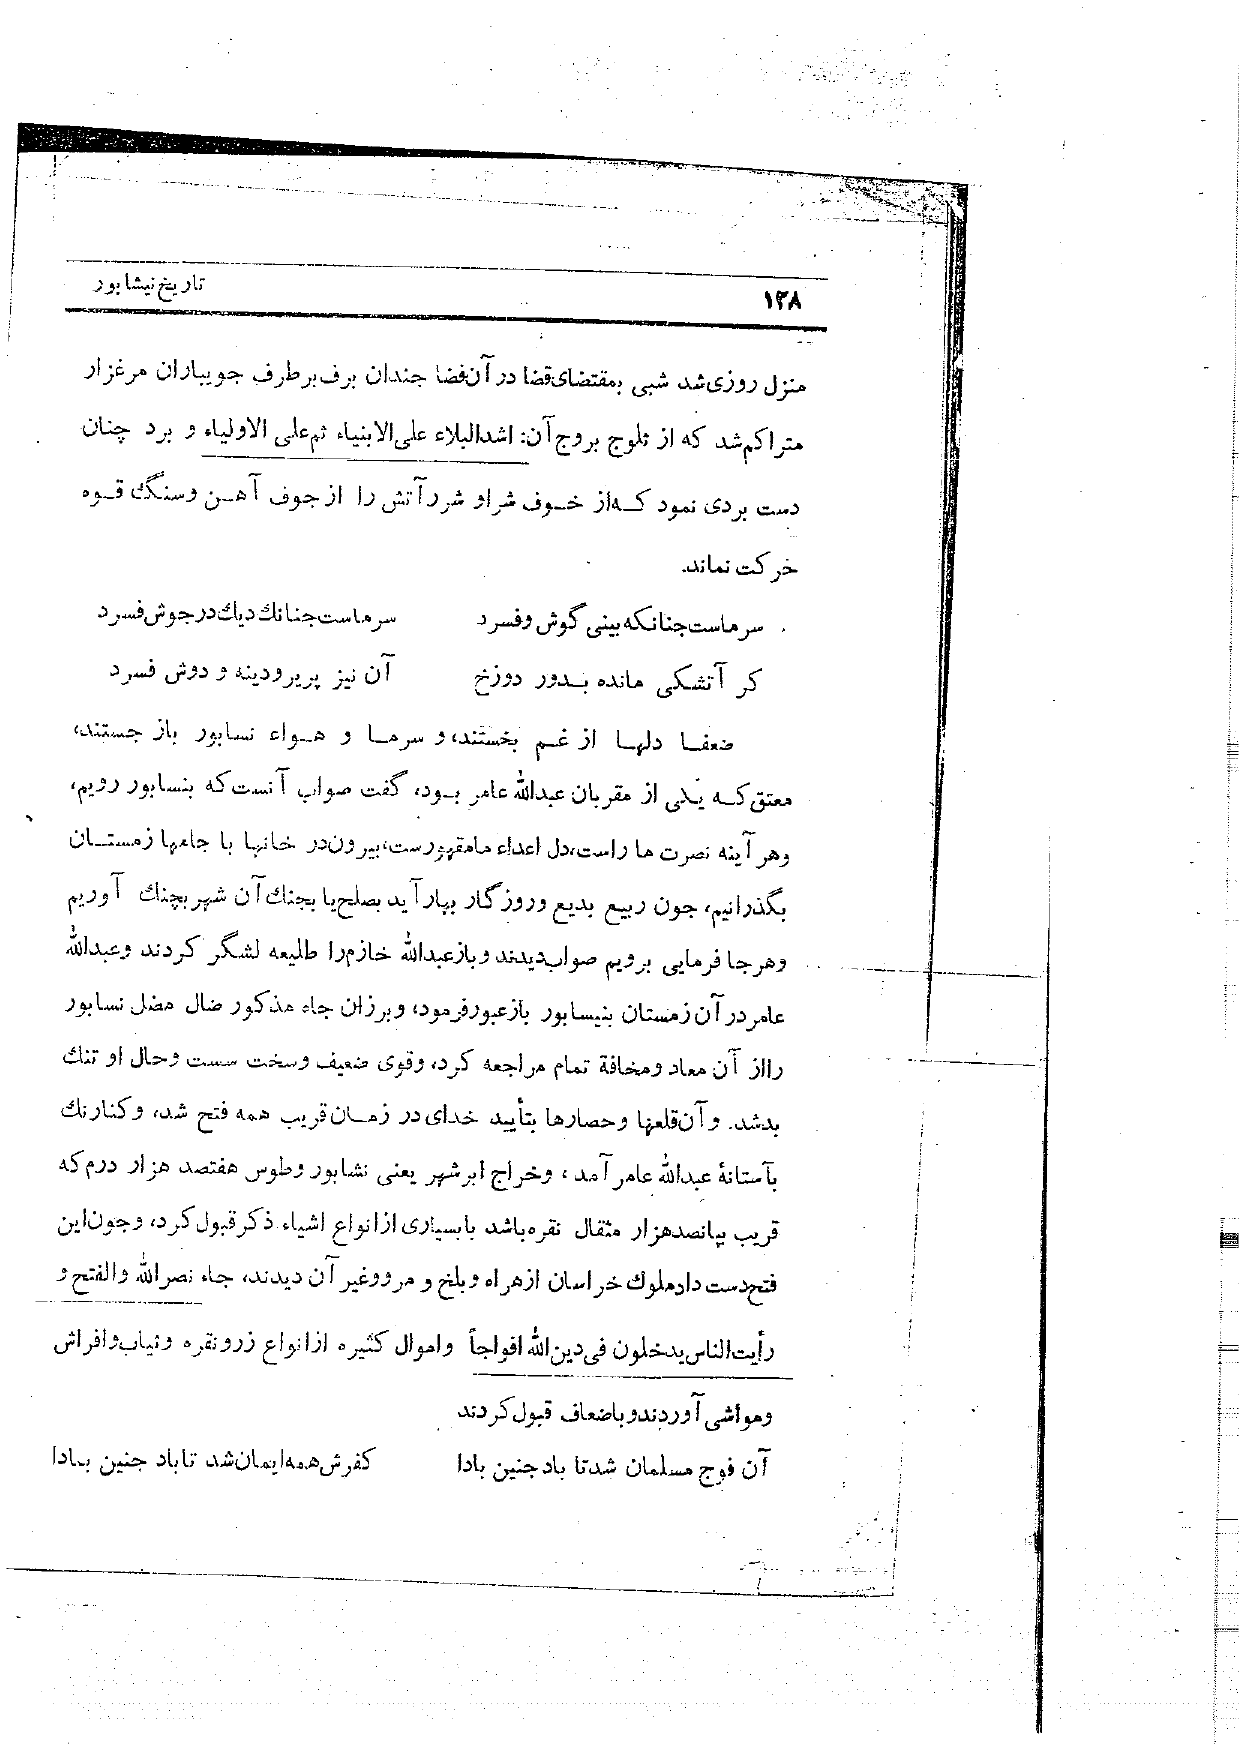 تاریخ نیشابور
۱۳۸
منزل روزی شد شبی بمقتضای قضا در آن فضا جندان برف بر طرف جویباران مرغزار
متراکم شد که از ثلوج بروج آن: اشد البلاء علی الانبیاء ثم علی الاولیاء و برد چنان
دست بردی نمود که از خوف شر او شرر آتش را از جوف آهن و سنگ قوه
حرکت نماند.
سرماست جنانکه بینی گوش و فسرد سرماست جنانك دیك در جوش فسرد
کر آتشکی مانده بدور دوزخ آن نیز پریرودینه و دوش فسرد
ضعفا دلها از غم بخستند، و سرما و هواء نسابور باز جستند،
معتق که یکی از مقربان عبدالله عامر بود، گفت صواب آنست که بنسابور رویم،
وهر آینه نصرت ما راست، دل اعداء ما مقهورست، بیرون در خانها با جامها زمستان
بگذرانیم، جون ربیع بدیع و روزگار بهار آید بصلح یا بجنك آن شهر بچنك آوریم
وهر جا فرمایی برویم صواب دیدند و باز عبدالله خازم را طلیعه لشگر کردند و عبدالله
عامر در آن زمستان بنیسابور باز عبور فرمود، و برزان جاه مذکور ضال مضل نسابور
را از آن معاد و مخافة تمام مراجعه کرد، و قوی ضعیف و سخت سست و حال او تنك
بدشد. و آن قلعها و حصارها بتأیید خدای در زمان قریب همه فتح شد، و کنارنك
بآستانهٔ عبدالله عامر آمد، و خراج ابرشهر یعنی نشابور و طوس هفتصد هزار درم که
قریب پانصد هزار مثقال نقره باشد با بسیاری از انواع اشیاء ذکر قبول کرد، و جون این
فتح دست داد ملوك خراسان از هراه و بلخ و مرو و غیر آن دیدند، جاء نصرالله والفتح و
رأیت الناس یدخلون فی دین الله افواجاً و اموال کثیره از انواع زر و نقره و ثیاب و افراش
ومواشی آوردند و باضعاف قبول کردند
آن فوج مسلمان شد تا باد جنین بادا کفرش همه ایمان شد تا باد جنین بادا